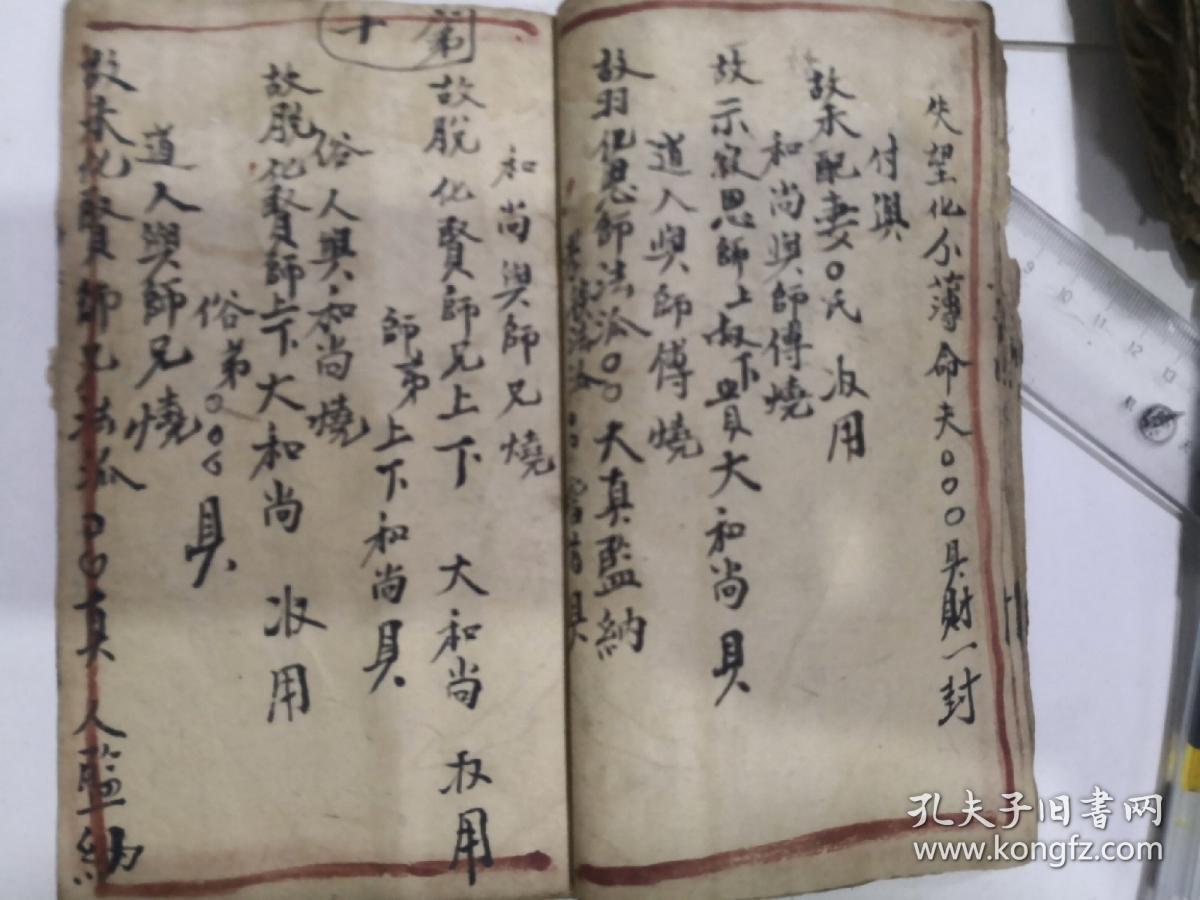 失望化仆薄命夫○○○具財一封
付與
故承配妻○氏 收用
和尚與師傅燒
故示寂恩師上故下貴大和尚 具
道人與師傅燒
故羽化恩師法派○○大真監納
和尚與師兄燒
故脫化賢師兄上下 大和尚 收用
師弟上下和尚具
俗人與和尚燒
故脫化賢師上下大和尚 收用
俗弟○○○具
道人與師兄燒
故未化賢師兄法派○○真人監納
第十
孔夫子旧書网
www.kongfz.com